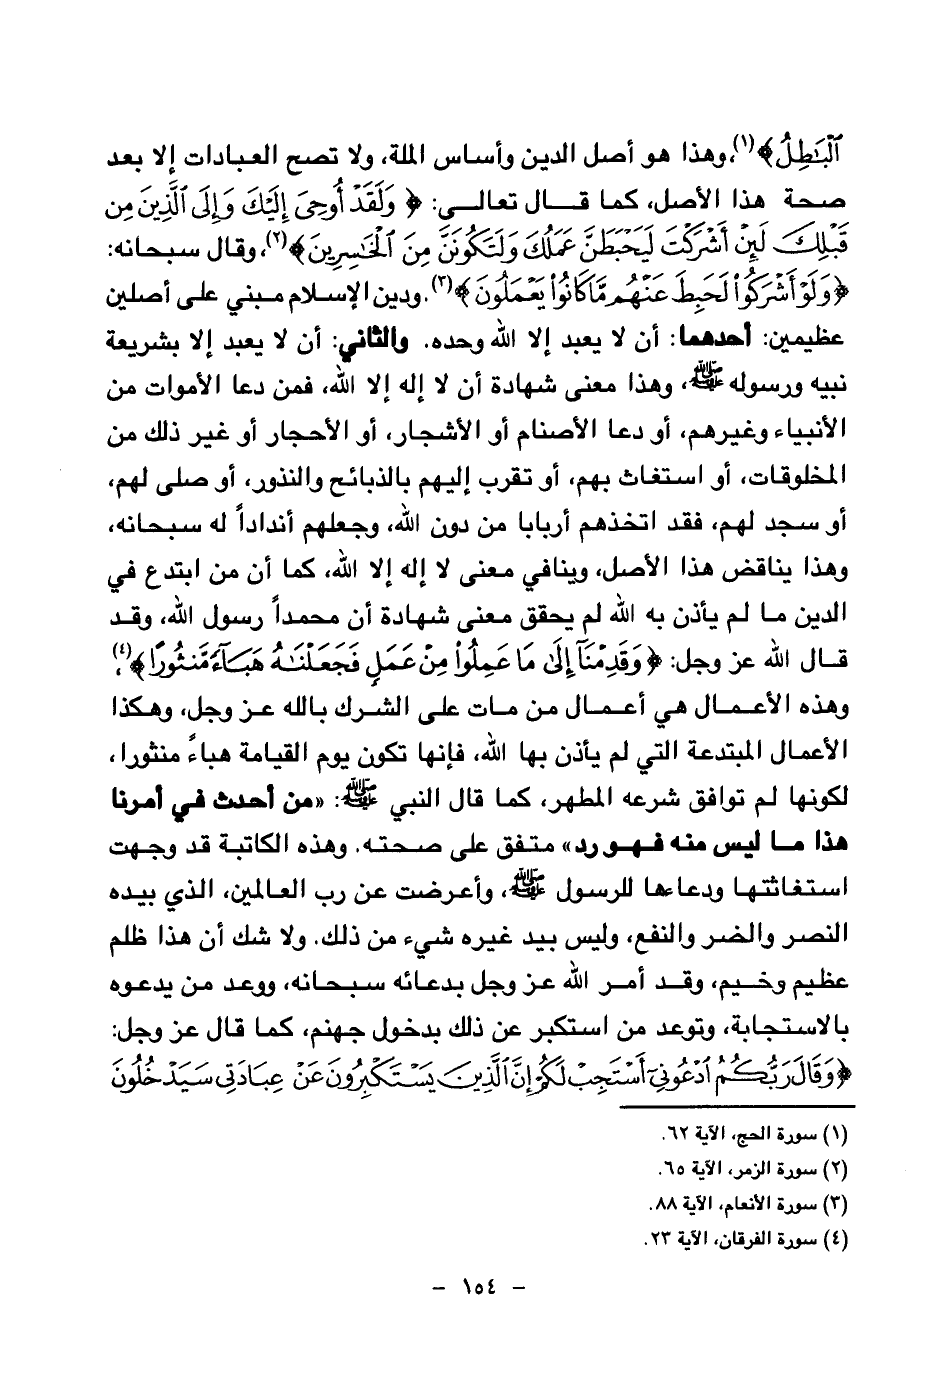 ٱلْبَٰطِلُ﴾(١)، وهذا هو أصل الدين وأساس الملة، ولا تصح العبادات إلا بعد
صحة هذا الأصل، كما قال تعالى: ﴿ وَلَقَدْ أُوحِىَ إِلَيْكَ وَإِلَى ٱلَّذِينَ مِن
قَبْلِكَ لَئِنْ أَشْرَكْتَ لَيَحْبَطَنَّ عَمَلُكَ وَلَتَكُونَنَّ مِنَ ٱلْخَٰسِرِينَ﴾(٢)، وقال سبحانه:
﴿وَلَوْ أَشْرَكُوا۟ لَحَبِطَ عَنْهُم مَّا كَانُوا۟ يَعْمَلُونَ﴾(٣). ودين الإسلام مبني على أصلين
عظيمين: أحدهما: أن لا يعبد إلا الله وحده. والثاني: أن لا يعبد إلا بشريعة
نبيه ورسوله ﷺ، وهذا معنى شهادة أن لا إله إلا الله، فمن دعا الأموات من
الأنبياء وغيرهم، أو دعا الأصنام أو الأشجار، أو الأحجار أو غير ذلك من
المخلوقات، أو استغاث بهم، أو تقرب إليهم بالذبائح والنذور، أو صلى لهم،
أو سجد لهم، فقد اتخذهم أربابا من دون الله، وجعلهم أنداداً له سبحانه،
وهذا يناقض هذا الأصل، وينافي معنى لا إله إلا الله، كما أن من ابتدع في
الدين ما لم يأذن به الله لم يحقق معنى شهادة أن محمداً رسول الله، وقد
قال الله عز وجل: ﴿ وَقَدِمْنَآ إِلَىٰ مَا عَمِلُوا۟ مِنْ عَمَلٍ فَجَعَلْنَٰهُ هَبَآءً مَّنثُورًا﴾(٤)،
وهذه الأعمال هي أعمال من مات على الشرك بالله عز وجل، وهكذا
الأعمال المبتدعة التي لم يأذن بها الله، فإنها تكون يوم القيامة هباءً منثورا،
لكونها لم توافق شرعه المطهر، كما قال النبي ﷺ: «من أحدث في أمرنا
هذا ما ليس منه فهو رد» متفق على صحته. وهذه الكاتبة قد وجهت
استغاثتها ودعاءها للرسول ﷺ، وأعرضت عن رب العالمين، الذي بيده
النصر والضر والنفع، وليس بيد غيره شيء من ذلك. ولا شك أن هذا ظلم
عظيم وخيم، وقد أمر الله عز وجل بدعائه سبحانه، ووعد من يدعوه
بالاستجابة، وتوعد من استكبر عن ذلك بدخول جهنم، كما قال عز وجل:
﴿وَقَالَ رَبُّكُمُ ٱدْعُونِىٓ أَسْتَجِبْ لَكُمْ إِنَّ ٱلَّذِينَ يَسْتَكْبِرُونَ عَنْ عِبَادَتِى سَيَدْخُلُونَ
(١) سورة الحج، الآية ٦٢.
(٢) سورة الزمر، الآية ٦٥.
(٣) سورة الأنعام، الآية ٨٨.
(٤) سورة الفرقان، الآية ٢٣.
- ١٥٤ -